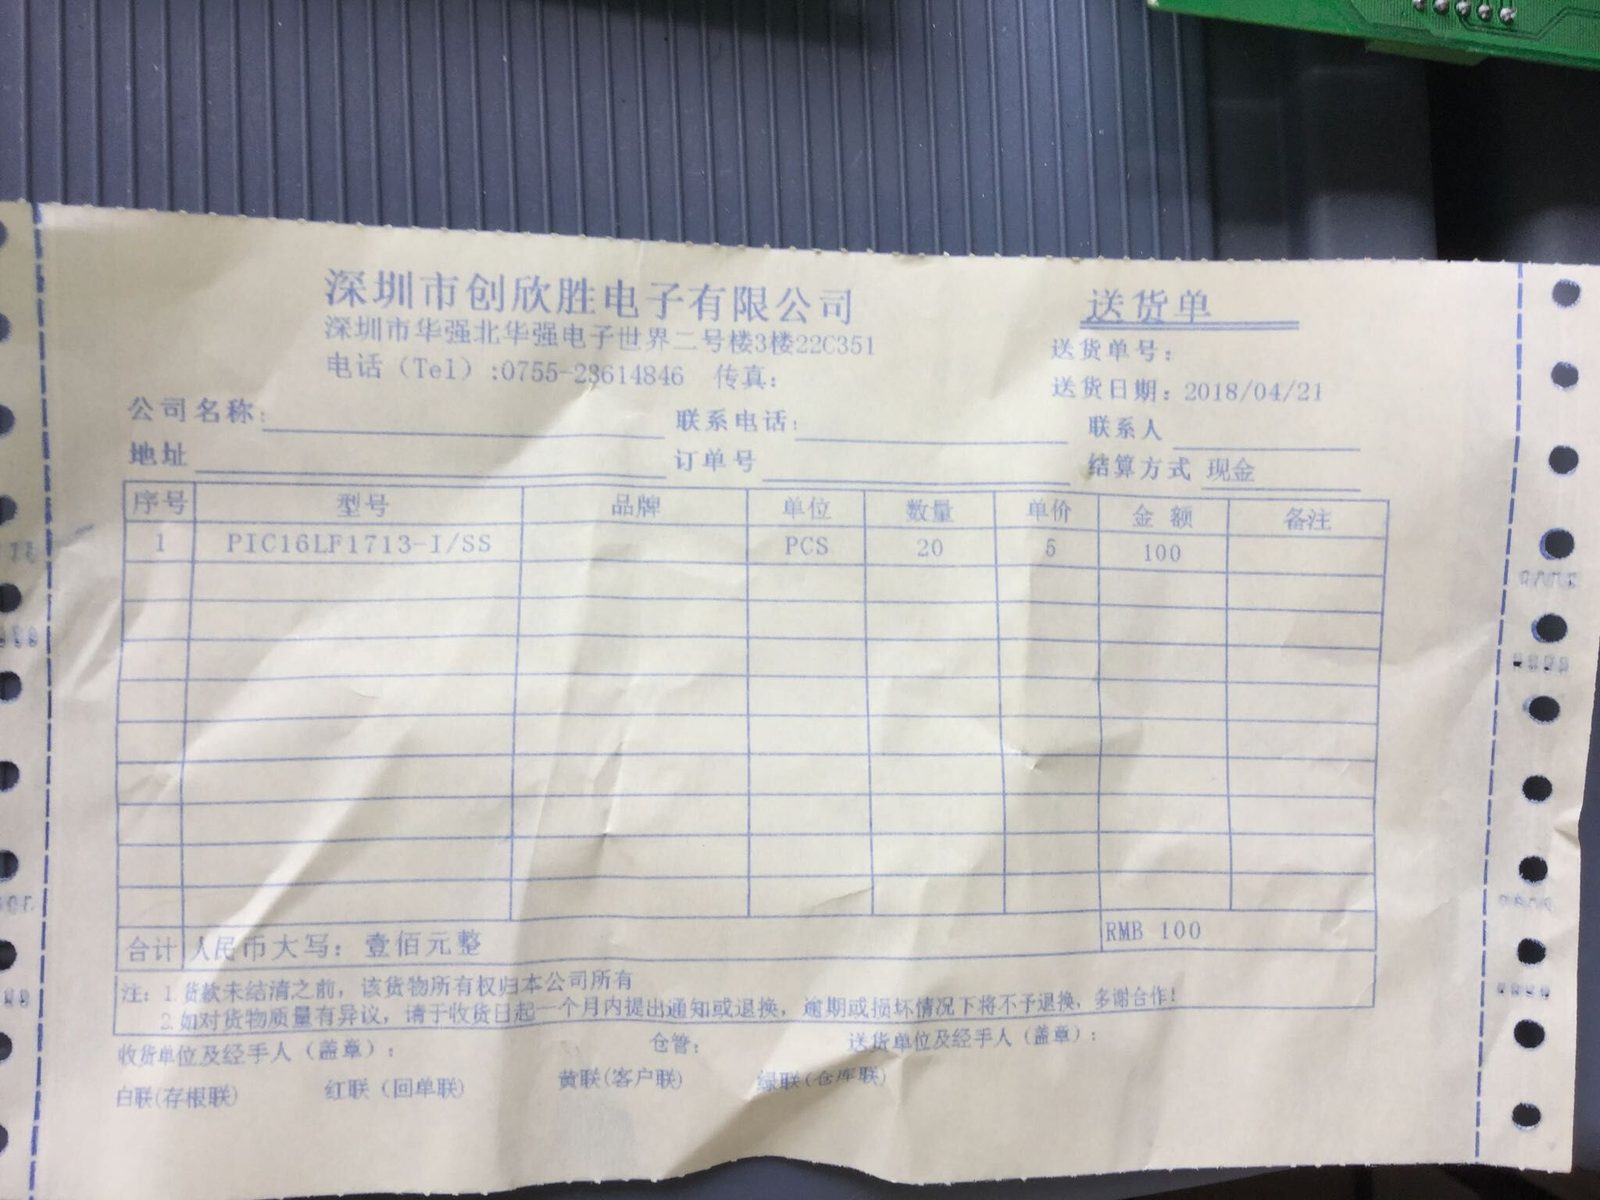 深圳市创欣胜电子有限公司 送货单
深圳市华强北华强电子世界二号楼3楼22C351 送货单号:
电话（Tel）:0755-23614846 传真: 送货日期: 2018/04/21
公司名称: 联系电话: 联系人
地址 订单号 结算方式 现金
序号 型号 品牌 单位 数量 单价 金 额 备注
1 PIC16LF1713-I/SS PCS 20 5 100
合计 人民币大写: 壹佰元整 RMB 100
注: 1.货款未结清之前，该货物所有权归本公司所有
2.如对货物质量有异议，请于收货日起一个月内提出通知或退换，逾期或损坏情况下将不予退换，多谢合作!
收货单位及经手人（盖章）: 仓管: 送货单位及经手人（盖章）:
白联(存根联) 红联（回单联） 黄联(客户联) 绿联(仓库联)